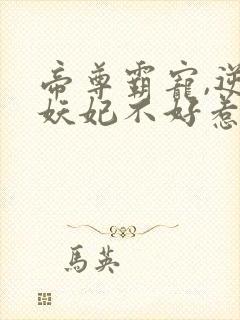 帝尊霸寵,逆
妖妃不好惹
馬英